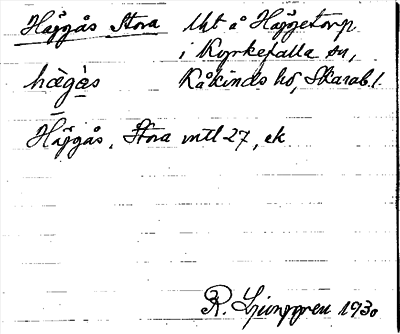 Häggås Stora Ukt å Häggetorp
i Kyrkefalla sn,
hägås Kåkinds hd, Skarab. l.
Häggås, Stora mtl 27, ek
R. Ljunggren 1930